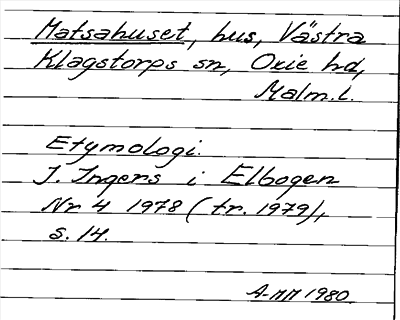 Matsahuset, hus, Västra
Klagstorps sn, Oxie hd,
Malm.l.
Etymologi.
I. Ingers i Elbogen
Nr 4 1978 (tr. 1979),
s. 14.
A-MM 1980